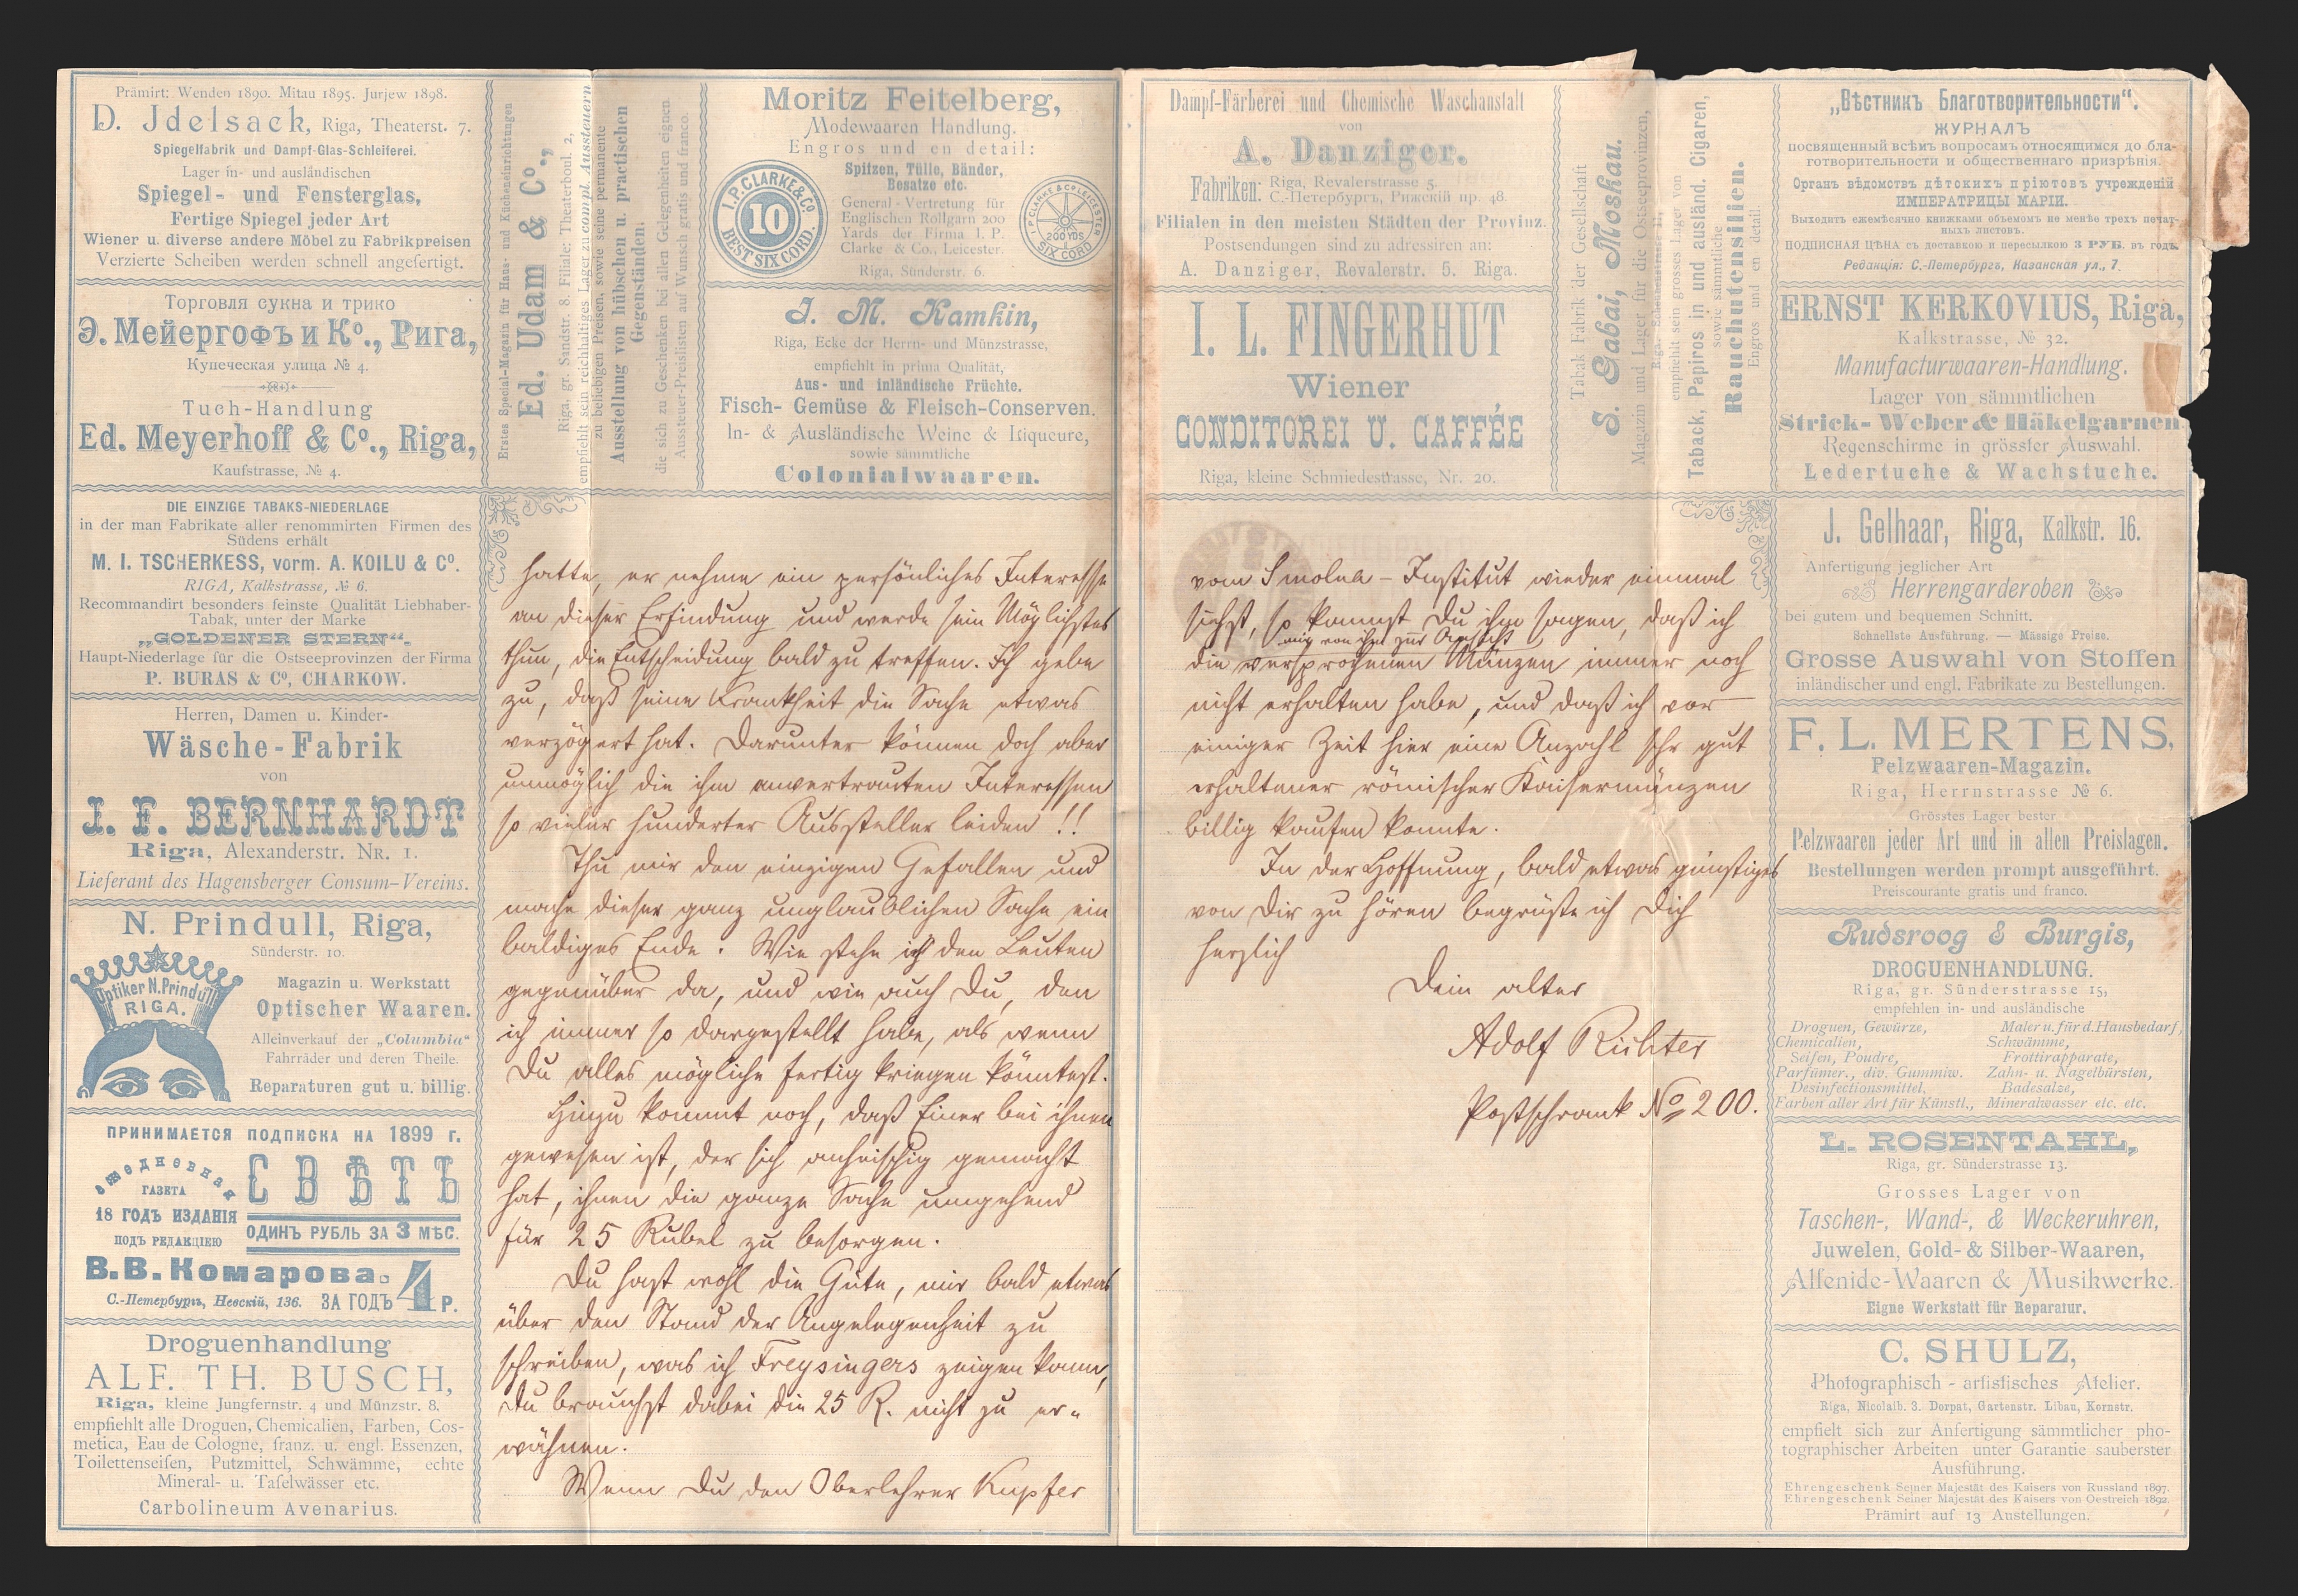 Prämirt: Wenden 1890. Mitau 1895. Jurjew 1898.
D. Jdelsack, Riga, Theaterst. 7.
Spiegelfabrik und Dampf-Glas-Schleiferei.
Lager in- und ausländischen
Spiegel- und Fensterglas,
Fertige Spiegel jeder Art
Wiener u. diverse andere Möbel zu Fabrikpreisen
Verzierte Scheiben werden schnell angefertigt.
Торговля сукна и трико
Э. Мейергофъ и Ко., Рига,
Купеческая улица № 4.
Tuch-Handlung
Ed. Meyerhoff & Co., Riga,
Kaufstrasse, № 4.
DIE EINZIGE TABAKS-NIEDERLAGE
in der man Fabrikate aller renommirten Firmen des
Südens erhält
M. I. TSCHERKESS, vorm. A. KOILU & Co.
RIGA, Kalkstrasse, № 6.
Recommandirt besonders feinste Qualität Liebhaber-
Tabak, unter der Marke
„GOLDENER STERN“.
Haupt-Niederlage für die Ostseeprovinzen der Firma
P. BURAS & Co, CHARKOW.
Herren, Damen u. Kinder-
Wäsche-Fabrik
von
I. F. BERNHARDT
Riga, Alexanderstr. NR. 1.
Lieferant des Hagensberger Consum-Vereins.
N. Prindull, Riga,
Sünderstr. 10.
Optiker N. Prindull
RIGA.
Magazin u. Werkstatt
Optischer Waaren.
Alleinverkauf der „Columbia“
Fahrräder und deren Theile.
Reparaturen gut u. billig.
ПРИНИМАЕТСЯ ПОДПИСКА НА 1899 г.
ежедневная
ГАЗЕТА
СВѢТЪ
18 ГОДЪ ИЗДАНІЯ
ПОДЪ РЕДАКЦІЕЮ
ОДИНЪ РУБЛЬ ЗА 3 МѢС.
В.В.Комарова.
С.-Петербургъ, Невскій, 136. ЗА ГОДЪ 4 Р.
Droguenhandlung
ALF. TH. BUSCH,
Riga, kleine Jungfernstr. 4 und Münzstr. 8.
empfiehlt alle Droguen, Chemicalien, Farben, Cos-
metica, Eau de Cologne, franz. u. engl. Essenzen,
Toilettenseifen, Putzmittel, Schwämme, echte
Mineral- u. Tafelwässer etc.
Carbolineum Avenarius.
Erstes Special-Magazin für Haus- und Kücheneinrichtungen
Ed. Udam & Co.,
Riga, gr. Sandstr. 8. Filiale: Theaterboul. 2,
empfiehlt sein reichhaltiges Lager zu compl. Aussteuern
zu beliebigen Preisen, sowie seine permanente
Ausstellung von hübschen u. practischen
Gegenständen,
die sich zu Geschenken bei allen Gelegenheiten eignen.
Aussteuer-Preislisten auf Wunsch gratis und franco.
Moritz Feitelberg,
Modewaaren Handlung.
Engros und en detail:
Spitzen, Tülle, Bänder,
Besatze etc.
General-Vertretung für
Englischen Rollgarn 200
Yards der Firma I. P.
Clarke & Co., Leicester.
Riga, Sünderstr. 6.
I.P. CLARKE & Co
10
BEST SIX CORD.
I.P. CLARKE & Co LEICESTER
200 YDS
SIX CORD
J. M. Kamkin,
Riga, Ecke der Herrn- und Münzstrasse,
empfiehlt in prima Qualität,
Aus- und inländische Früchte.
Fisch- Gemüse & Fleisch-Conserven.
In- & Ausländische Weine & Liqueure,
sowie sämmtliche
Colonialwaaren.
hatte, er nehme ein persönliches Interesse
an dieser Erfindung und werde sein Möglichstes
thun, die Entscheidung bald zu treffen. Ich gebe
zu, daß seine Krankheit die Sache etwas
verzögert hat. Darunter können doch aber
unmöglich die ihm anvertrauten Interessen
so vieler hunderter Aussteller leiden!!
Thu mir den einzigen Gefallen und
mache dieser ganz unglaublichen Sache ein
baldiges Ende. Wie stehe ich den Leuten
gegenüber da, und wie auch Du, den
ich immer so dargestellt habe, als wenn
Du alles mögliche fertig kriegen könntest.
Hinzu kommt noch, daß Einer bei ihnen
gewesen ist, der sich anheischig gemacht
hat, ihnen die ganze Sache umgehend
für 25 Rubel zu besorgen.
Du hast wohl die Güte, mir bald etwas
über den Stand der Angelegenheit zu
schreiben, was ich Freysingers zeigen kann,
Du brauchst dabei die 25 R. nicht zu er-
wähnen.
Wenn Du den Oberlehrer Kupfer
Dampf-Färberei und Chemische Waschanstalt
von
A. Danziger.
Fabriken: Riga, Revalerstrasse 5.
С.-Петербургъ, Рижскій пр. 48.
Filialen in den meisten Städten der Provinz.
Postsendungen sind zu adressiren an:
A. Danziger, Revalerstr. 5. Riga.
I. L. FINGERHUT
Wiener
CONDITOREI U. CAFFÉE
Riga, kleine Schmiedestrasse, Nr. 20.
Tabak Fabrik der Gesellschaft
S. Gabai, Moskau.
Magazin und Lager für die Ostseeprovinzen,
empfiehlt sein grosses Lager von
Taback, Papiros in und ausländ. Cigaren,
sowie sämmtliche
Rauchutensilien.
Engros und en detail.
vom Smolna-Institut wieder einmal
siehst, so kannst Du ihm sagen, daß ich
mir von ihm zur Ansicht
die versprochenen Münzen immer noch
nicht erhalten habe, und daß ich vor
einiger Zeit hier eine Anzahl sehr gut
erhaltener römischer Kaisermünzen
billig kaufen konnte.
In der Hoffnung, bald etwas günstiges
von Dir zu hören begrüßte ich Dich
herzlich
Dein alter
Adolf Richter
Postschrank No 200.
„Вѣстникъ Благотворительности“.
ЖУРНАЛЪ
посвященный всѣмъ вопросамъ относящимся до бла-
готворительности и общественнаго призрѣнія.
Органъ вѣдомствъ дѣтскихъ пріютовъ учрежденій
ИМПЕРАТРИЦЫ МАРІИ.
Выходитъ ежемѣсячно книжками объемомъ не менѣе трехъ печат-
ныхъ листовъ.
ПОДПИСНАЯ ЦѢНА съ доставкою и пересылкою 3 РУБ. въ годъ.
Редакція: С.-Петербургъ, Казанская ул., 7.
ERNST KERKOVIUS, Riga,
Kalkstrasse, № 32.
Manufacturwaaren-Handlung.
Lager von sämmtlichen
Strick- Weber & Häkelgarnen.
Regenschirme in grösster Auswahl.
Ledertuche & Wachstuche.
J. Gelhaar, Riga, Kalkstr. 16.
Anfertigung jeglicher Art
Herrengarderoben
bei gutem und bequemen Schnitt.
Schnellste Ausführung. — Mässige Preise.
Grosse Auswahl von Stoffen
inländischer und engl. Fabrikate zu Bestellungen.
F. L. MERTENS,
Pelzwaaren-Magazin.
Riga, Herrnstrasse № 6.
Grösstes Lager bester
Pelzwaaren jeder Art und in allen Preislagen.
Bestellungen werden prompt ausgeführt.
Preiscourante gratis und franco.
Rudsroog & Burgis,
DROGUENHANDLUNG.
Riga, gr. Sünderstrasse 15,
empfehlen in- und ausländische
Droguen, Gewürze, Maler u. für d. Hausbedarf,
Chemicalien, Schwämme,
Seifen, Poudre, Frottirapparate,
Parfümer., div. Gummiw. Zahn- u. Nagelbürsten,
Desinfectionsmittel, Badesalze,
Farben aller Art für Künstl., Mineralwasser etc. etc.
L. ROSENTAHL,
Riga, gr. Sünderstrasse 13.
Grosses Lager von
Taschen-, Wand-, & Weckeruhren,
Juwelen, Gold- & Silber-Waaren,
Alfenide-Waaren & Musikwerke.
Eigne Werkstatt für Reparatur.
C. SHULZ,
Photographisch - artistisches Atelier.
Riga, Nicolaib. 3. Dorpat, Gartenstr. Libau, Kornstr.
empfielt sich zur Anfertigung sämmtlicher pho-
tographischer Arbeiten unter Garantie sauberster
Ausführung.
Ehrengeschenk Seiner Majestät des Kaisers von Russland 1897.
Ehrengeschenk Seiner Majestät des Kaisers von Oestreich 1892.
Prämirt auf 13 Austellungen.